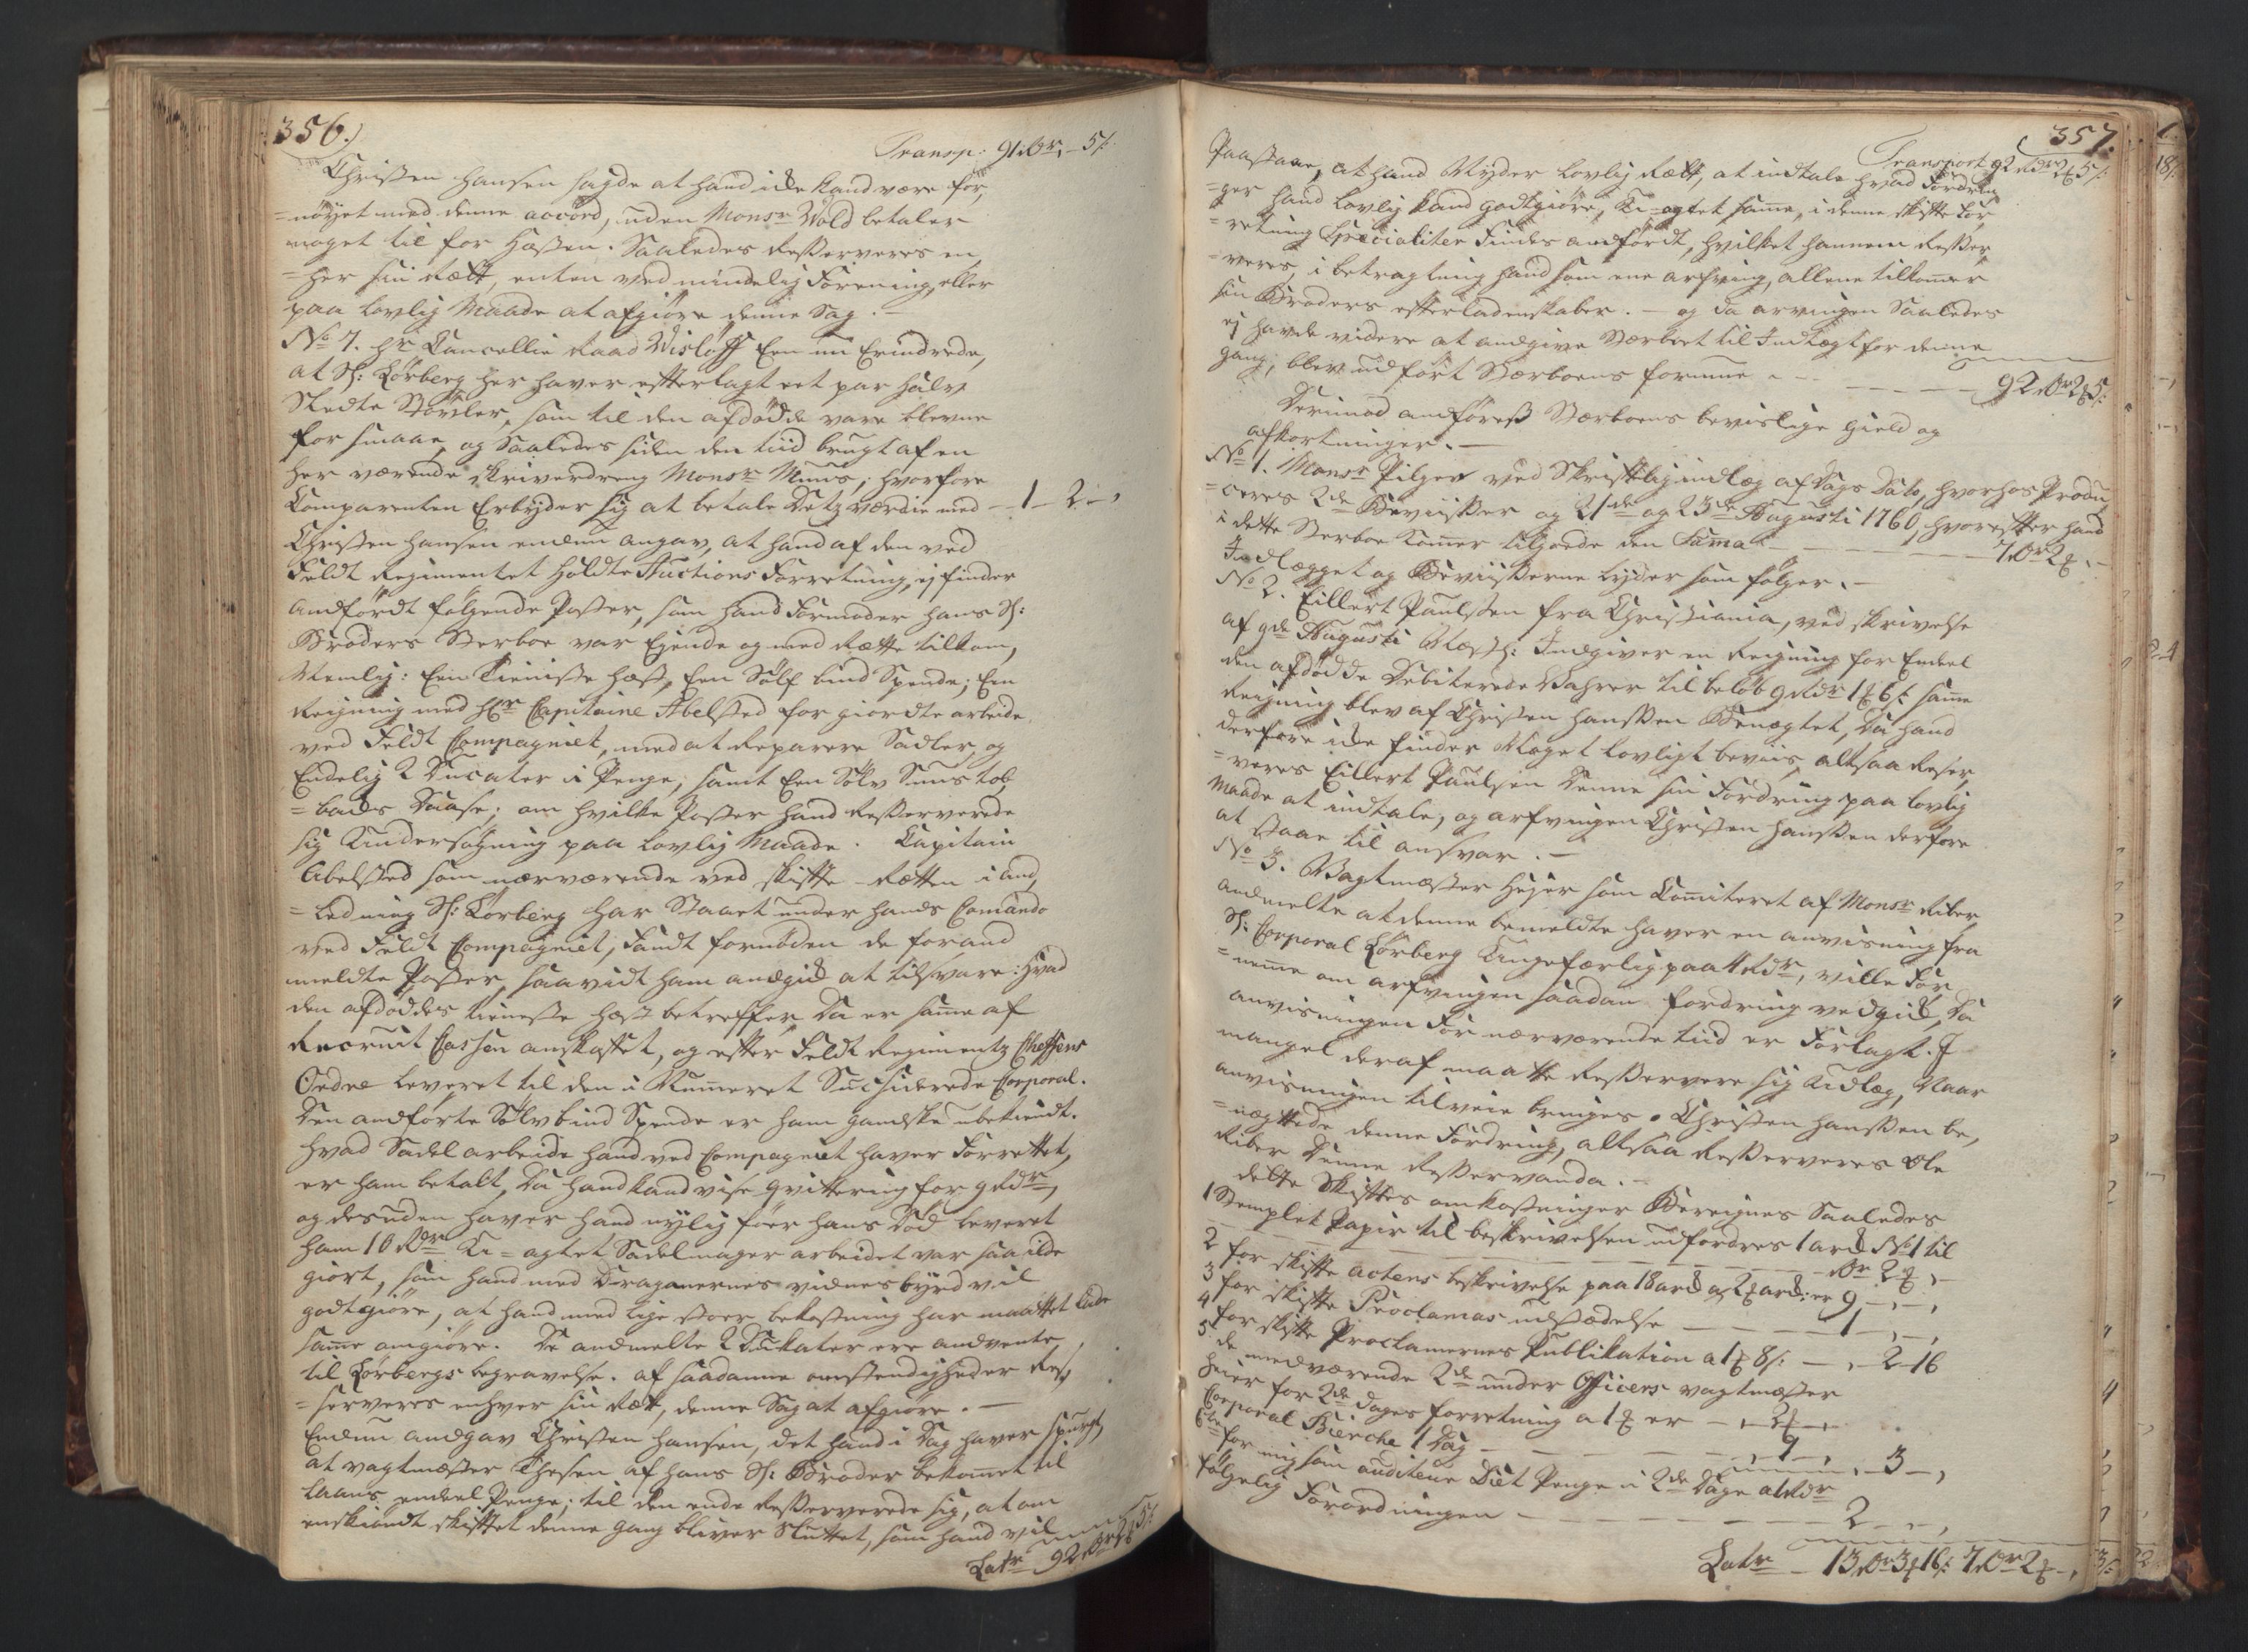 356.)
Transp: 91 rdr - 5 s:
Christen Hansen sagde at hand icke kand være for,
=nöyet med denne accord, uden Monsr Wold betaler
noget til for Hæsten. Saaledes Resserveres en,
=hver sin Rætt, enten ved mindelig Forening, eller
paa lovlig Maade at afgiöre denne Sag. -
No 7. hr Cancellie Raad Wislöff Een nu Erindrede,
at Sl: Körberg her haver efterlagt eet par halv
Sledte Stövler, som til den afdödde vare blevne
for smaae, og Saaledes siden den tiid brugt af en
her værende skriverdreng Monsr Muus; hvorfore
Comparenten Erbyder sig at betale Detz værdie med - 1 - 2 -,
Christen Hansen endnu angav, at hand af den ved
Feldt Regimentet holdte Auctions Forretning, ej finder
andfördt fölgende Poster, som hand Formoder hans Sl:
Broders Sterboe var Ejende og med Rætte tilkom,
Nemlig: Een Tieniste Hæst, Een Sölf bind Spende; Een
Reigning med Hr Capitaine Abelsted for giordte arbeide
ved Feldt Compagniet, med at Reparere Sadler, og
Endelig 2 Ducater i Penge, samt Een Sölv Snus tob,
=backs Daase; om hvilke Poster hand Resserverede
sig Undersögning paa lovlig Maade. Capitain
Abelsted som nærværende ved skifte-Rætten i and,
=ledning Sl: Körberg har Staaet under hands Comando
ved Feldt Compagniet, Fandt fornöden de forand
meldte Poster, saavidt ham anægick at tilsvare: hvad
den afdöddes tieneste hæst betreffer Da er samme af
Recruit Cassen anskaffet, og efter Feldt Regimentz Cheffens
Ordre leveret til den i Nummeret Succiderede Corporal.
Den andförte Sölv bind Spende er ham gandske ubekiendt.
hvad Sadel arbeide hand ved Compagniet haver Forrettet,
er ham betalt, Da hand kand vise qvittering for 9 Rdr,
og desuden haver hand nylig föer hans Död leveret
ham 10 Rdr Un=agtet Sadelmager arbeidet var saa ilde
giort, som hand med Dragonernes vidnesbyrd vil
godtgiöre, at hand med lige stoer bekostning har maattet lade
samme omgiöre. De andmelte 2 Ducater ere andvente
til Körbergs begravelse. af saadanne omstendigheder Res,
=serveres enhver sin Ræt, denne Sag at afgiöre. -
Endnu andgav Christen Hansen, det hand i Dag haver spurgt,
at vagtmæster Thesen af hans Sl: Broder bekommet til
laans endeel Penge; til den ende Resserverede sig, at om
enskiöndt skiftet denne Gang bliver Sluttet, som hand vil
Latr 92 rdr 2 5 s:
357.
Transport 92 rdr 2 5 s:
Paastaae, at hand Nyder lovlig Rætt, at indtale hvad Fordrin,
=ger hand lovlig kand godtgiöre, Un-agtet samme, i denne skifte For,
=retning Specialiter findes andfördt, hvilket hannem Resser,
=veres, i betragtning hand som ene arfving, allene tilkommer
sin Broders efterladenskaber. - og da arvingen Saaledes
ej havde videre at andgive Stærboet til Indtægt for denne
gang, blev udfört Stærboens formue - - - 92 rdr 2 5 s:
Derimod andföress Stærboens bevislige gield og
afkortninger. -
No 1. Monsr Pilger ved Skriftlig indlæg af Dags Dato, hvorhos Produ,
=ceres 2de Beviisser og 21de og 23de Augusti 1760, hvorefter hand
i dette Sterboe kommer tilgode den Summa - - - 7 rdr 2 -
Indlægget og Beviisserne lyder som fölger. -
No 2. Eillert Paulssen fra Christiania, ved skrivelse
af 9de Augusti Næstl: Indgiver en Reigning for Endeel
den afdödde Debiterede Vahrer til belöb 9 Rdr 1 6 s: samme
Reigning blev af Christen Hanssen Benægtet, Da hand
derfore icke finder Noget lovligt beviis, altsaa Reser,
=veres Eillert Paulssen denne sin Fordring paa lovlig
Maade at indtale, og arfvingen Christen Hanssen derfore
at staae til ansvar. -
No 3. Vagtmæster Hejer som Committeret af Monsr Riber
andmelte at denne bemeldte haver en anvisning fra
Sl: Corporal Körberg Ungefærlig paa 4 Rdr, ville For,
=nemme om arfvingen saadan fordring vedgick, Da
anvisningen For nærværende tiid er Forlagt. I
mangel deraf maatte Resservere sig Udlæg, Naar
anvisningen tilveie bringes. Christen Hanssen be,
=nægttede denne Fordring, altsaa Resserveres Ole
Riber Denne Resservanda. -
dette Skiftes omkostninger Bereignes Saaledes
1 Stemplet Papir til beskrivelsen udfordres 1 arck No 1 til
- - - rdr 2 -
2 for skifte actens beskrivelse paa 18 arck a 2 arck: er 9 - , - ,
3 for skifte Proclamas udstædelse - - - 1 - , - ,
4 for skifte Proclamernes Publikation a 1 8 s: - , - 2 - 16
5 de medværende 2de under Officers vagtmæster
Heier for 2de dages forretning a 1 er - , - 2 - ,
Corporal Bierche 1 Dag - - - , - 1 - , - 3 - ,
6te for mig som auditeur Diet Penge i 2de Dage a 1 Rdr
fölgelig Forordningen - - - 2 - , - ,
Latr - 13 rdr 3 16 s: 7 rdr 2 - ,